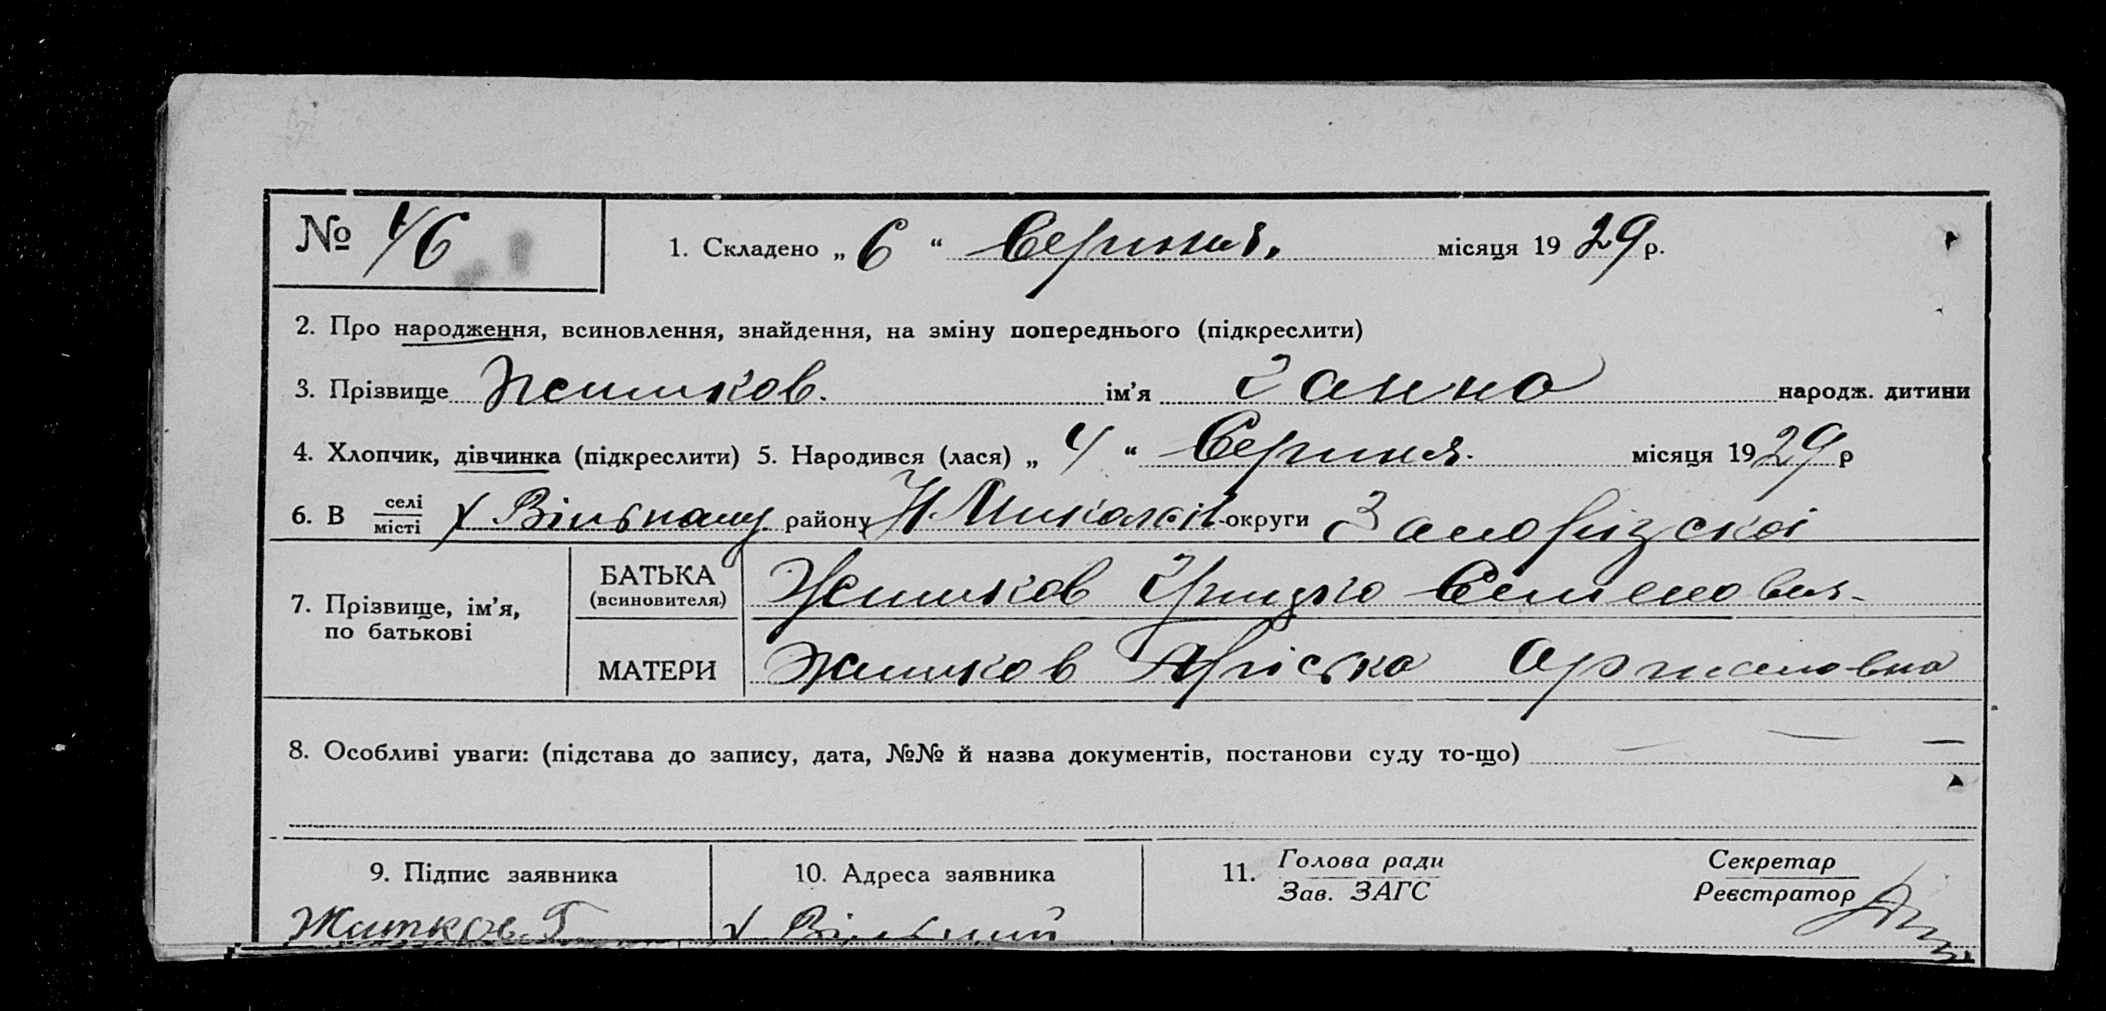 № 46
1. Складено „ 6 “ Серпня. місяця 19 29 р.
2. Про народження, всиновлення, знайдення, на зміну попереднього (підкреслити)
3. Прізвище Житков. ім’я Ганна народж. дитини
4. Хлопчик, дівчинка (підкреслити) 5. Народився (лася) „ 4 “ Серпня. місяця 19 29 р
6. В селі місті х Вільному району Н. Миколаїв. округи Запорізскоі
7. Прізвище, ім’я, по батькові
БАТЬКА (всиновителя) Житков Грицко Семенович
МАТЕРИ Житков Пріська
8. Особливі уваги: (підстава до запису, дата, №№ й назва документів, постанови суду то-що)
9. Підпис заявника 10. Адреса заявника 11. Голова ради Секретар
Зав. ЗАГС Реєстратор
Житков. Г х Вільний